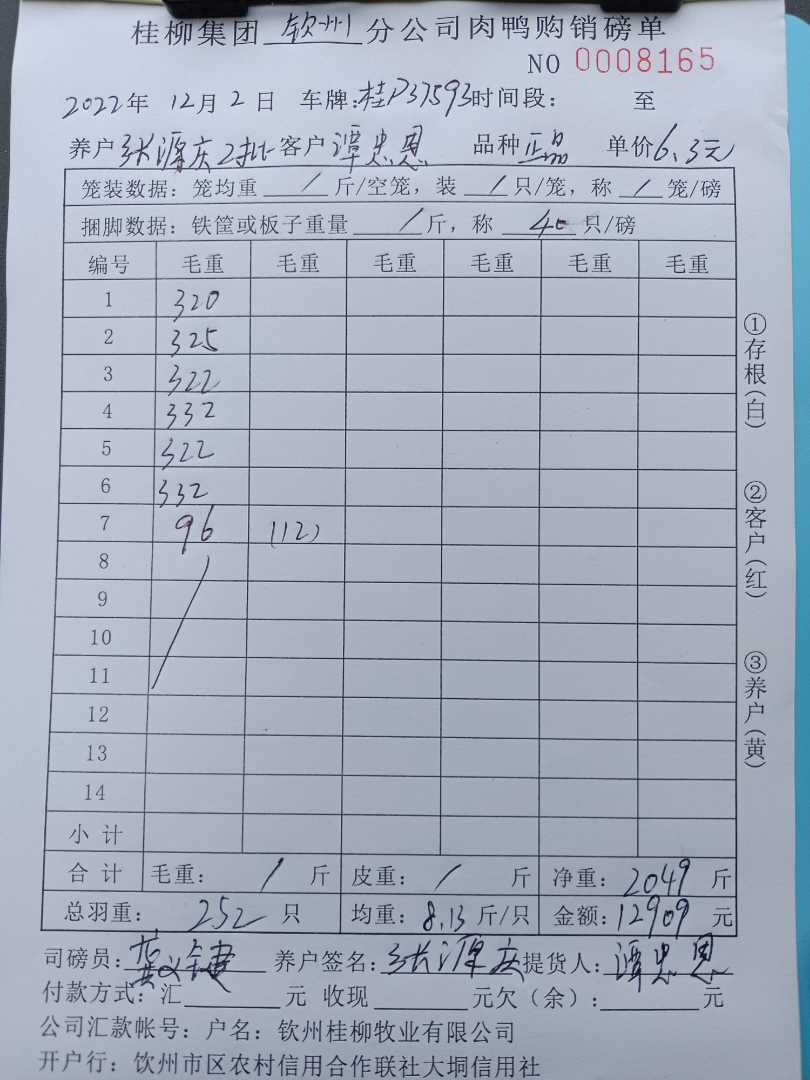 桂柳集团 钦州 分公司肉鸭购销磅单
NO 0008165
2022年 12月 2日 车牌:桂P37593 时间段: 至
养户 张源庆2批 客户 谭忠恩 品种 正品 单价 6.3元
笼装数据:笼均重 / 斤/空笼,装 / 只/笼,称 / 笼/磅
捆脚数据:铁筐或板子重量 / 斤,称 40 只/磅
编号 毛重 毛重 毛重 毛重 毛重 毛重
1 320
2 325
3 322
4 332
5 322
6 332
7 96 (12)
8
9
10
11
12
13
14
小计
合计 毛重: / 斤 皮重: / 斤 净重: 2049 斤
总羽重: 252 只 均重: 8.13 斤/只 金额: 12909 元
司磅员: 养户签名: 张源庆 提货人: 谭忠恩
付款方式:汇 元 收现 元欠(余): 元
公司汇款帐号:户名:钦州桂柳牧业有限公司
开户行:钦州市区农村信用合作联社大垌信用社
①存根(白)
②客户(红)
③养户(黄)